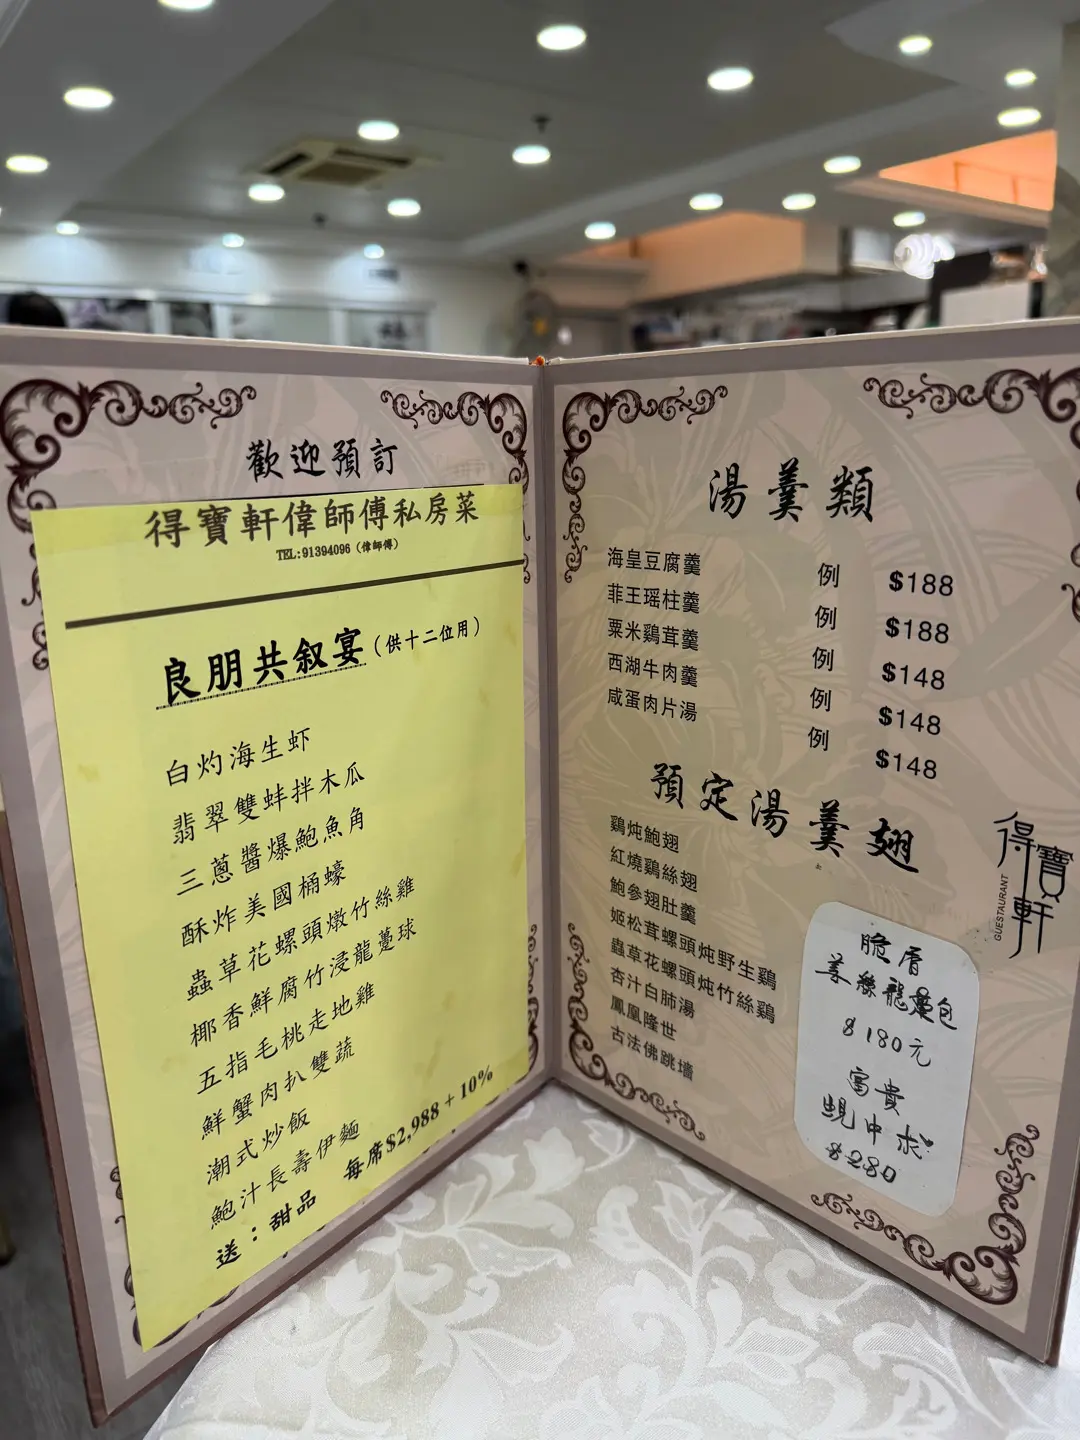 歡迎預訂
得寶軒偉師傅私房菜
TEL:91394096 (偉師傅)
良朋共叙宴(供十二位用)
白灼海生虾
翡翠雙蚌拌木瓜
三蔥醬爆鮑魚角
酥炸美國桶蠔
蟲草花螺頭燉竹絲雞
椰香鮮腐竹浸龍躉球
五指毛桃走地雞
鮮蟹肉扒雙蔬
潮式炒飯
鮑汁長壽伊麵
送:甜品 每席$2,988 + 10%
湯羹類
海皇豆腐羹 例 $188
菲王瑶柱羹 例 $188
粟米鷄茸羹 例 $148
西湖牛肉羹 例 $148
咸蛋肉片湯 例 $148
預定湯羹翅
鷄炖鮑翅
紅燒鷄絲翅
鮑參翅肚羹
姬松茸螺頭炖野生鷄
蟲草花螺頭炖竹絲鷄
杏汁白肺湯
鳳凰隆世
古法佛跳墻
脆眉
龍躉包
$180元
富貴
蜆中求
$280
得寶軒
GUESTAURANT